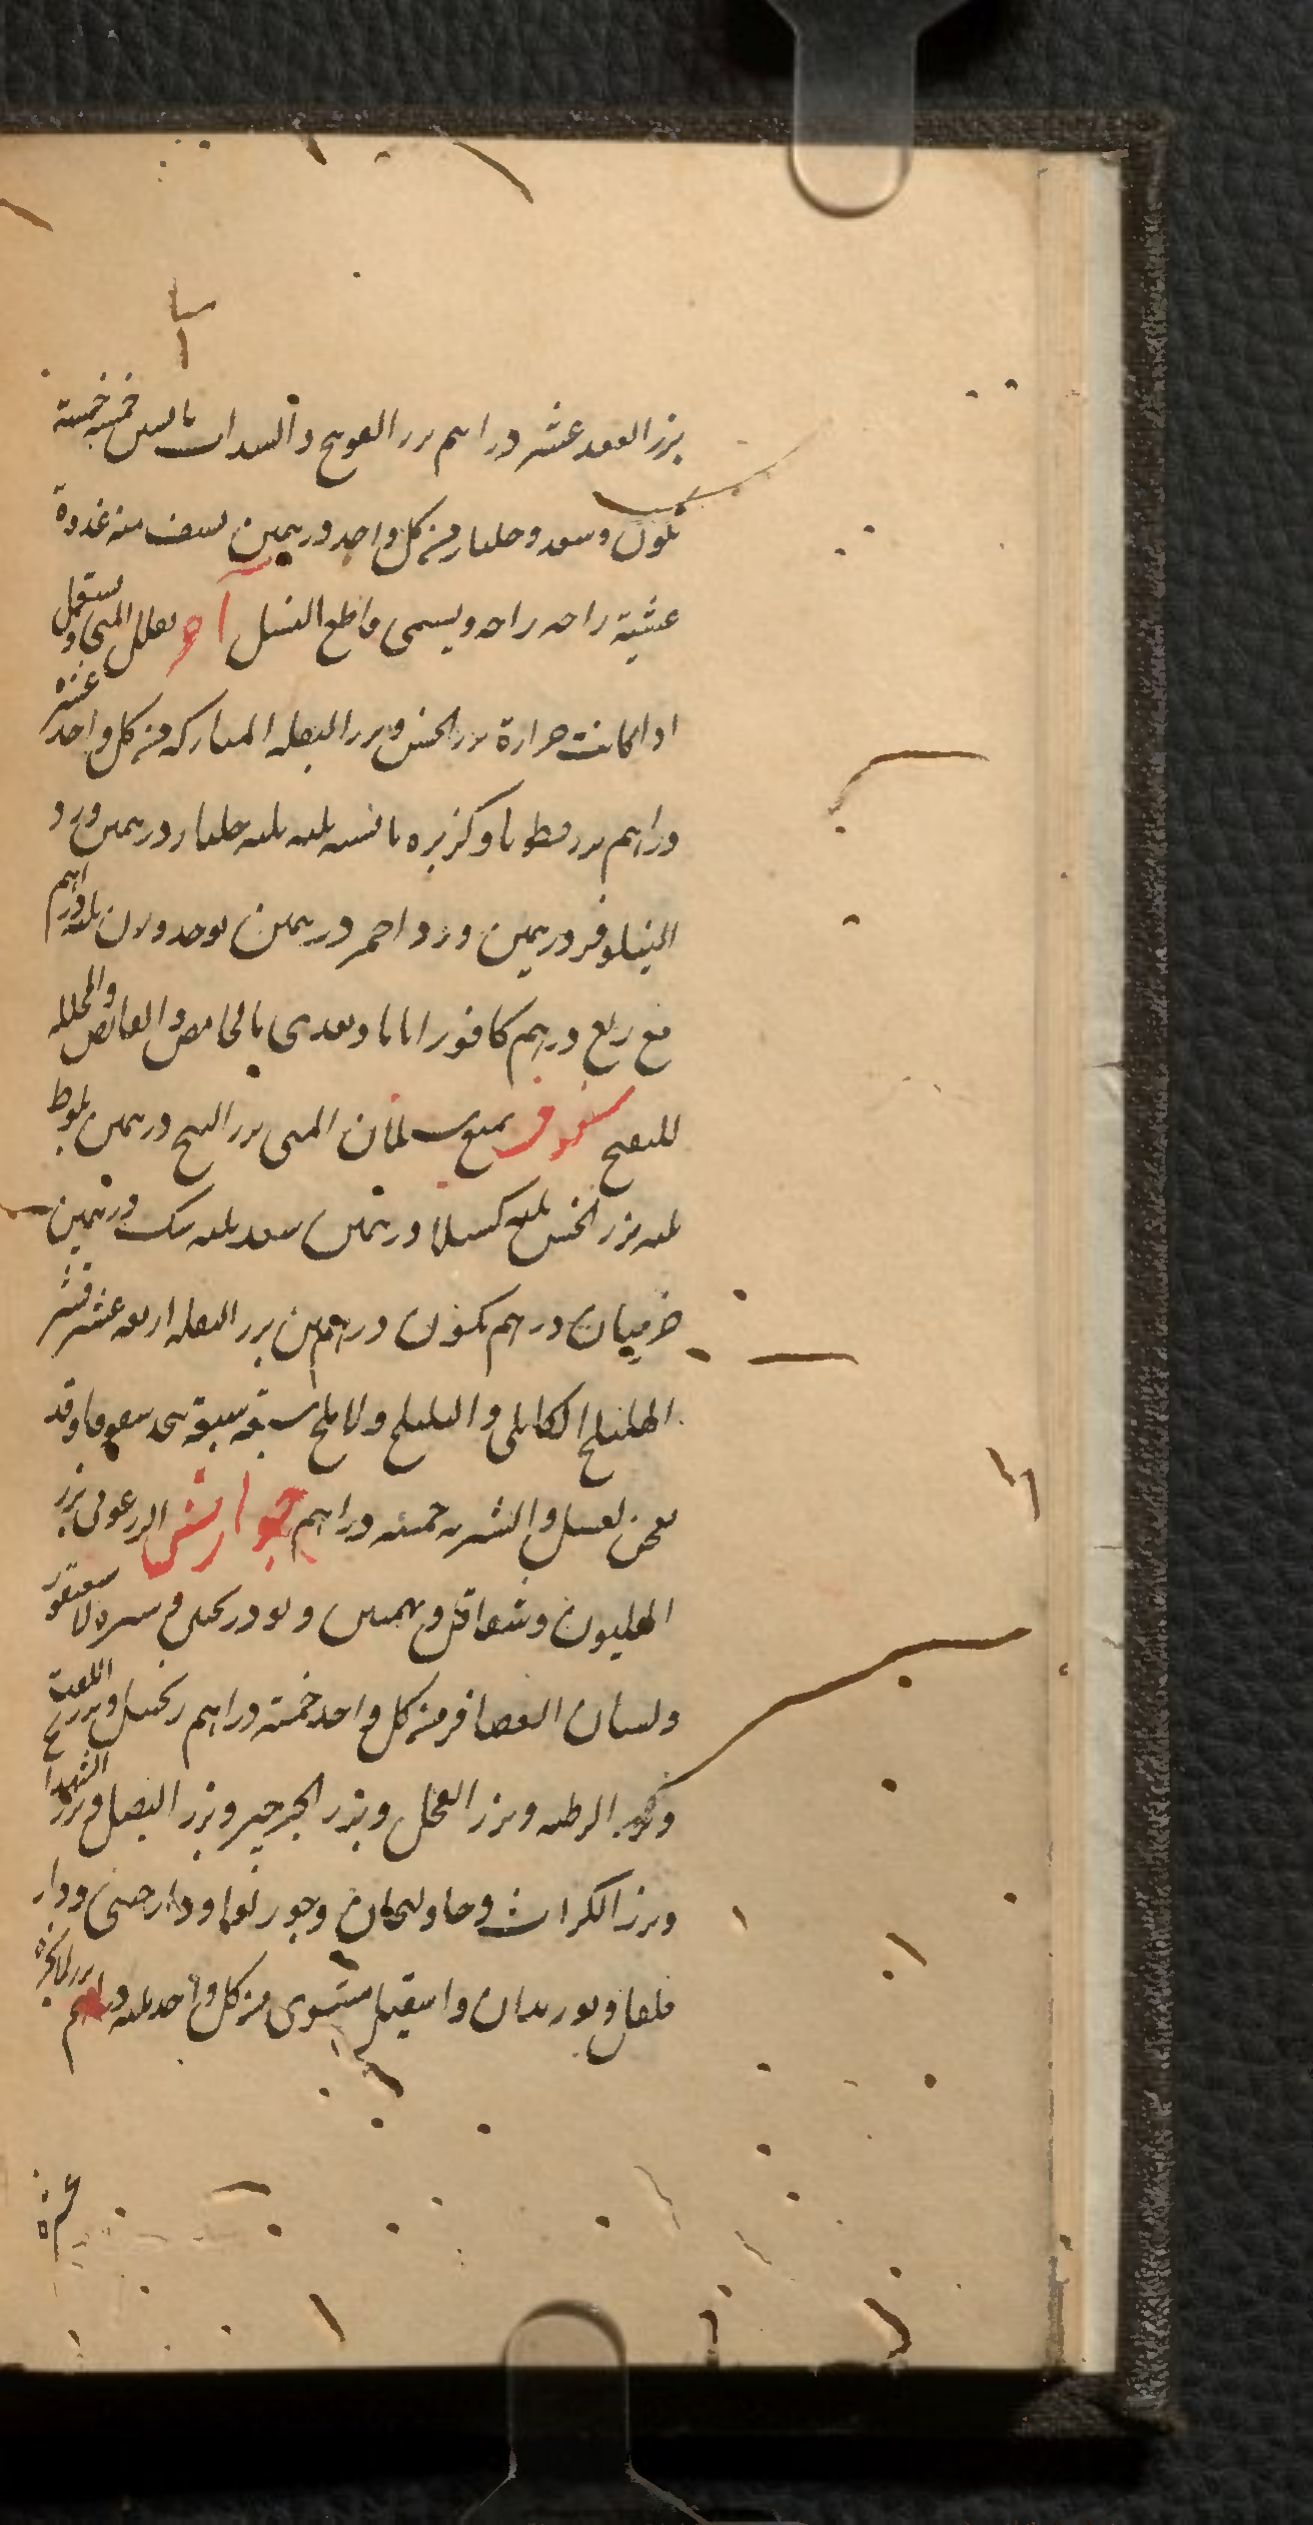 بزر الفقد عشر دراهم بزر الفوتنج والسداب يابس خمسة خمسة
كمون وسعد وجلنار من كل واحد درهمين يسف منه غدوة
عشية راحه راحه ويسمى قاطع النسل آخر يقلل المنى ويستعمل
اذا كانت حرارة بزر الخس وبزر البقلة المباركه من كل واحد عشر
دراهم بزر قطونا وكزبره يابسه ثلثه ثلثه جلنار درهمين ورد
النيلوفر درهمين ورد احمر درهمين يوخذ وزن ثلثه دراهم
مع ربع درهم كافور اياما ويغدى بالحامض والقابض والمحلله
للنفخ سفوف يمنع سيلان المنى بزر البنج درهمين بلوط
ثلثه بزر الخس ثلثه كسيلا درهمين سعد ثلثه سك درهمين
خرميان درهم كمون درهمين بزر البقله اربعه عشر قشر
الهليلج الكابلى والبليلج والاملج سبعه سبعة يتخذ سفوفا وقد
يعجن بعسل والشربه خمسه دراهم جوارش الزرعونى بزر
الهليون وشقاقل وبهمنين وبوذريحين وسرة الاسقنقور
ولسان العصافر من كل واحد خمسة دراهم زنجبيل وبزر اللفت
وبزر الرطبه وبزر الفجل وبزر الجرجير وبزر البصل وبزر
وبزر الكراث وخاولنجان وجوزبوا ودارصينى ودار
فلفل وبوزيدان واسقيل مشوى من كل واحد ثلثه دراهم بزر الانجره